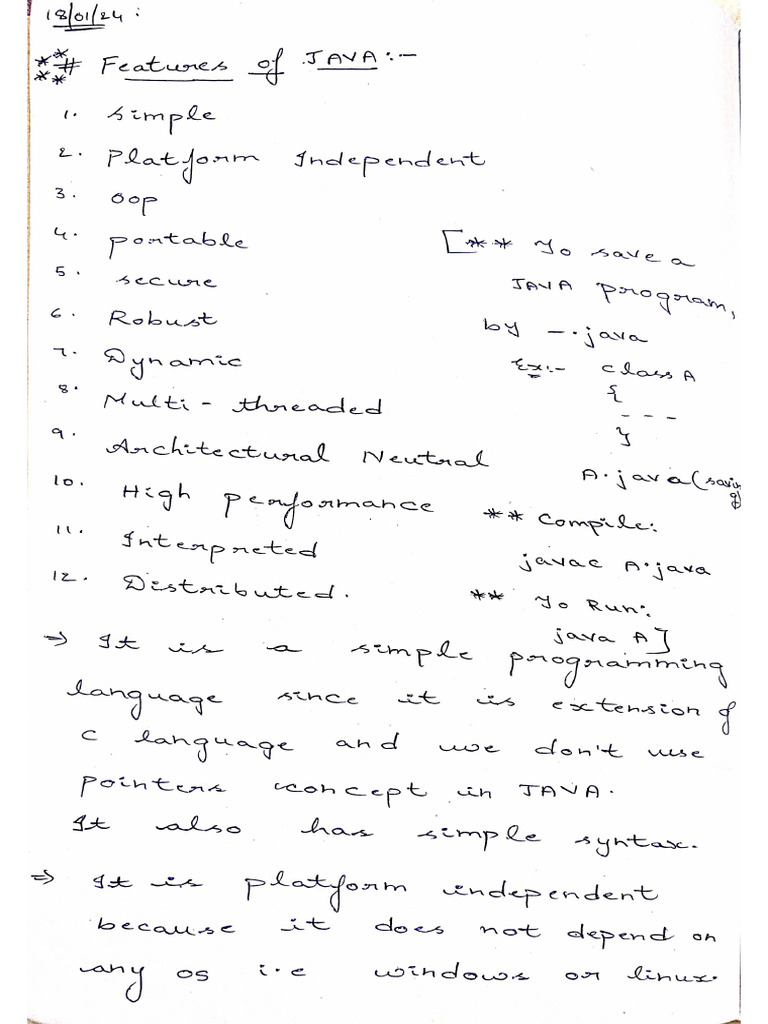 18/01/24:
**
** # Features of JAVA:-
1. simple
2. Platform Independent
3. OOP
4. portable
5. secure
6. Robust
7. Dynamic
8. Multi - threaded
9. Architectural Neutral
10. High performance
11. Interpreted
12. Distributed.
[** To save a
JAVA program,
by —.java
Ex:- class A
{
- - -
}
A.java (saving)
** Compile:
javac A.java
** To Run:
java A]
⇒ It is a simple programming
language since it is extension of
c language and we don't use
pointers concept in JAVA.
It also has simple syntax.
⇒ It is platform independent
because it does not depend on
any os i.e windows or linux.